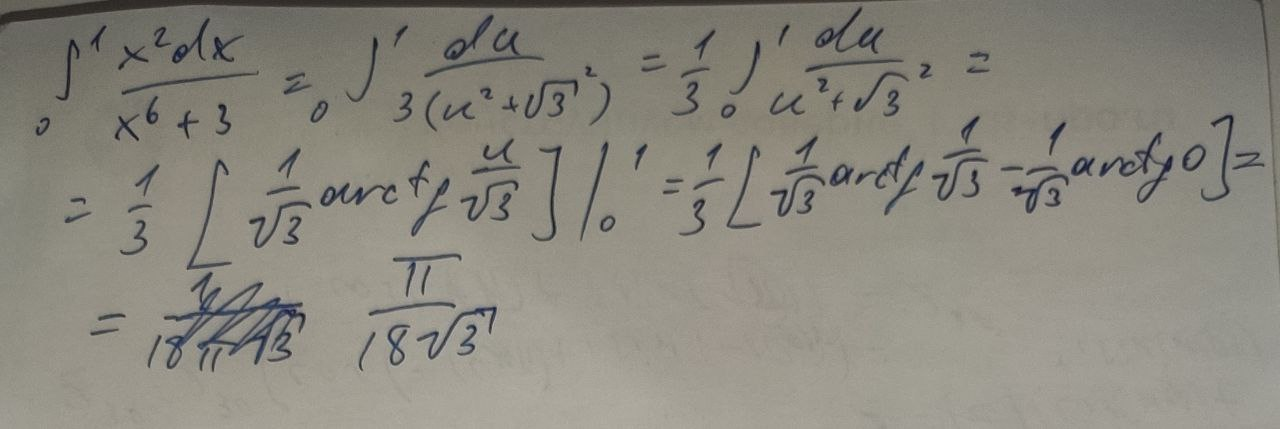 ∫₀¹ x²dx / (x⁶ + 3) = ∫₀¹ du / 3(u² + √3²) = 1/3 ∫₀¹ du / (u² + √3²) =
= 1/3 [ 1/√3 arctg u/√3 ] |₀¹ = 1/3 [ 1/√3 arctg 1/√3 − 1/√3 arctg 0 ] =
= π / 18√3